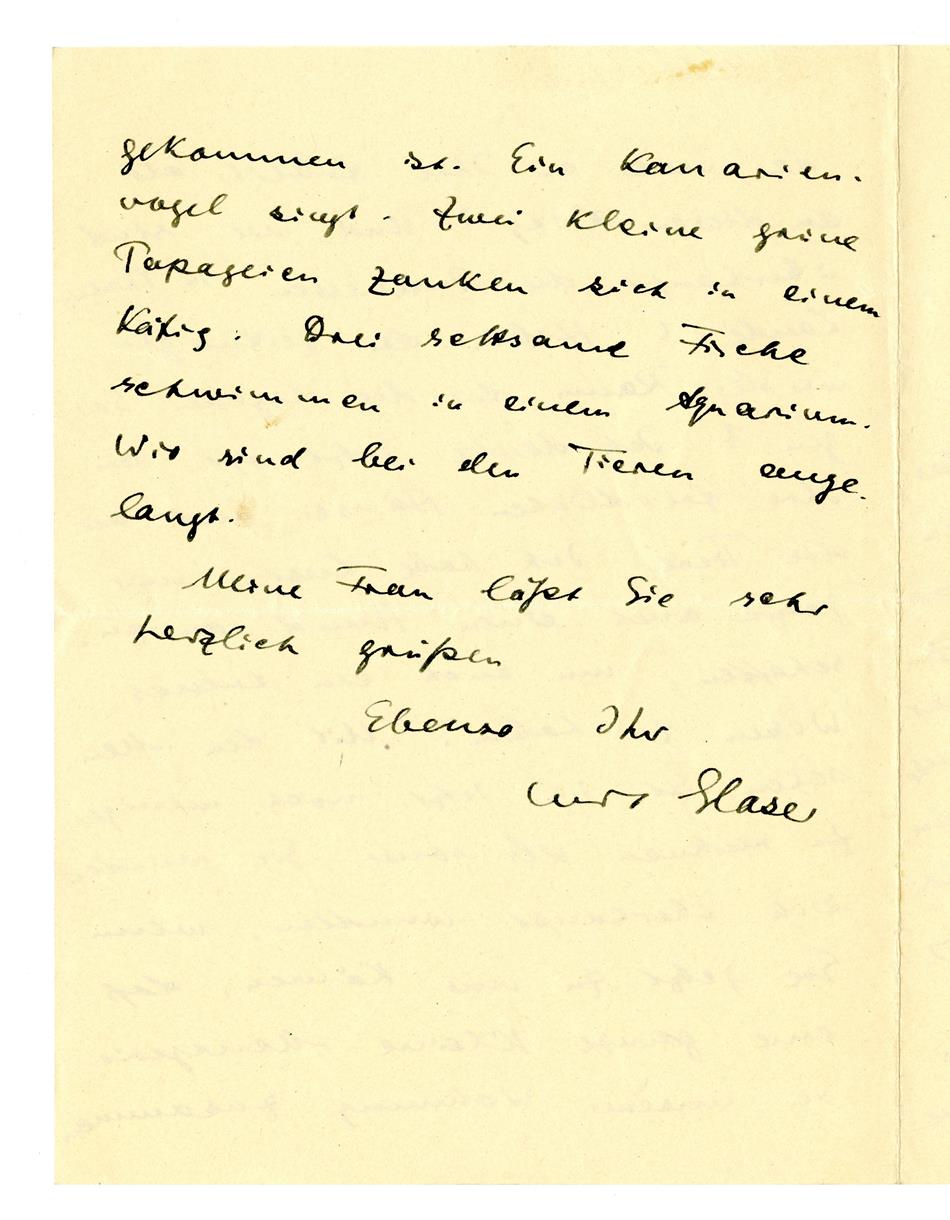 gekommen ist. Ein Kanarien-
vogel singt. Zwei kleine grüne
Papageien zanken sich in einem
Käfig. Drei seltsame Fische
schwimmen in einem Aquarium.
Wir sind bei den Tieren ange-
langt.
Meine Frau läßt Sie sehr
herzlich grüßen
Ebenso Ihr
Curt Glaser